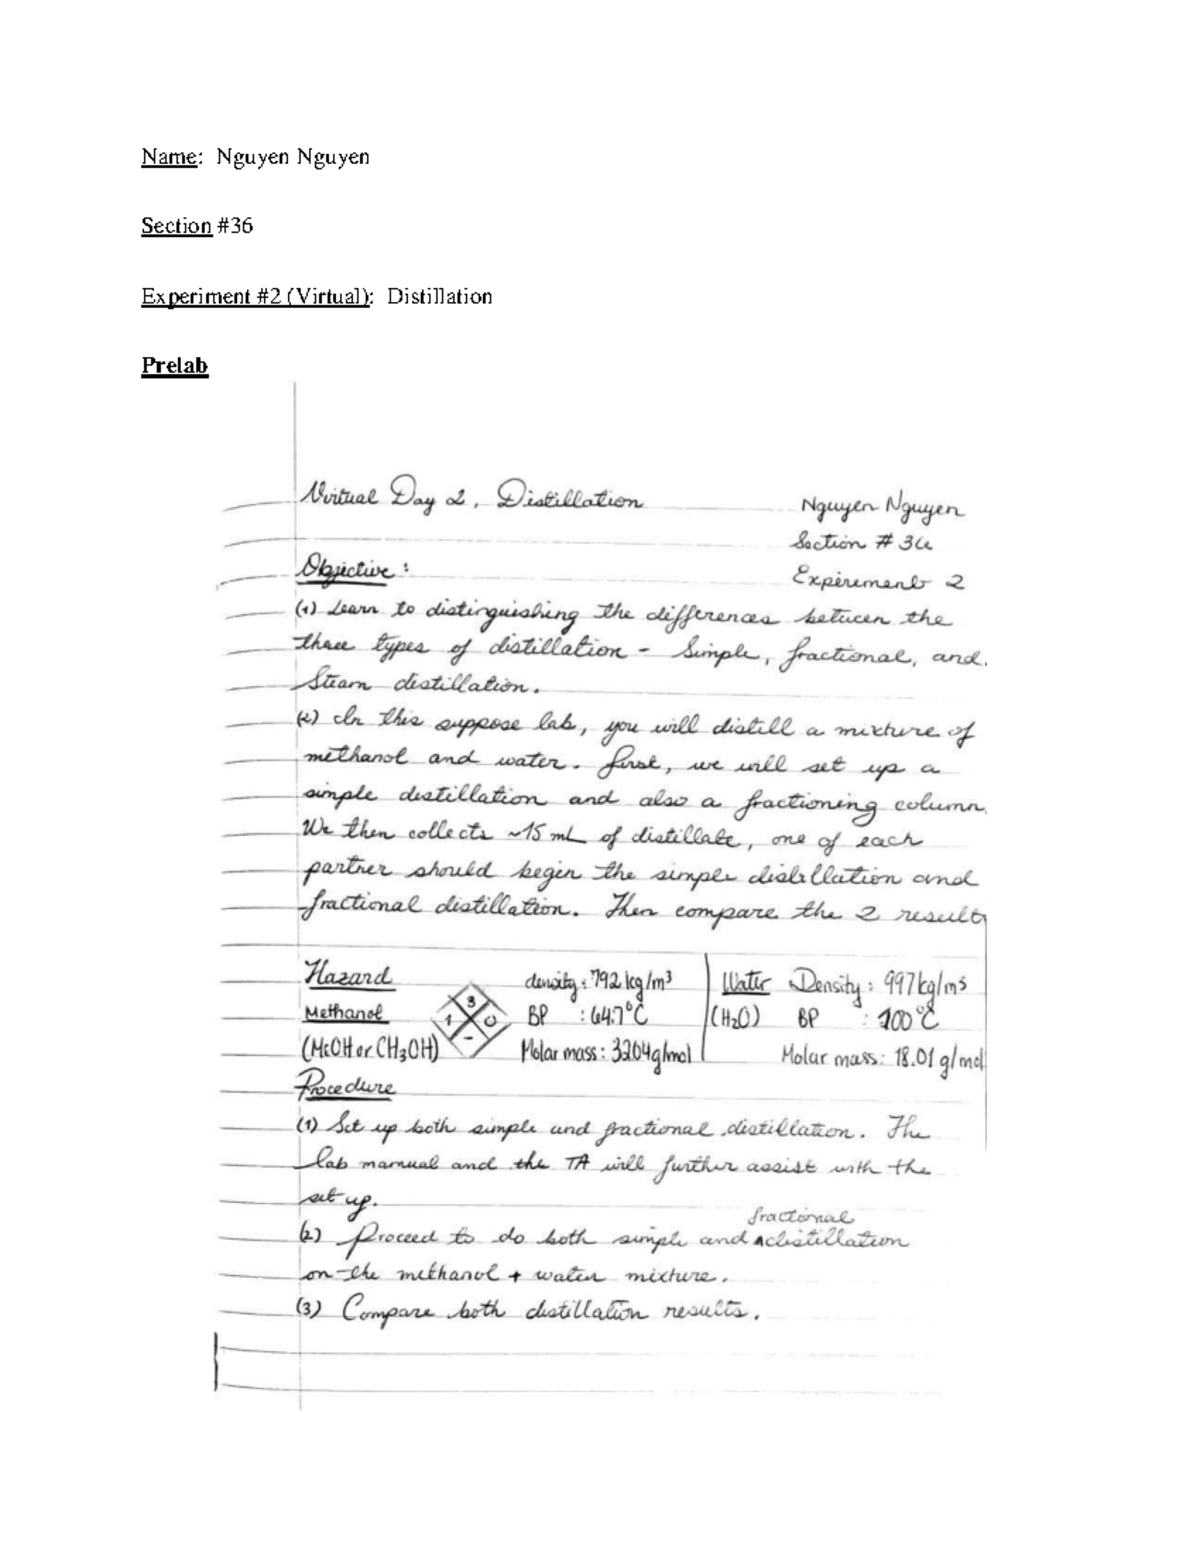 Name: Nguyen Nguyen
Section #36
Experiment #2 (Virtual): Distillation
Prelab
Virtual Day 2, Distillation
Nguyen Nguyen
Section # 36
Objective:
Experiment 2
(1) Learn to distinguishing the differences between the
three types of distillation - Simple, fractional, and
Steam distillation.
(2) In this suppose lab, you will distill a mixture of
methanol and water. First, we will set up a
simple distillation and also a fractioning column.
We then collects ~15 mL of distillate, one of each
partner should begin the simple distillation and
fractional distillation. Then compare the 2 results
Hazard density: 792 kg/m3 Water Density: 997 kg/m3
Methanol 3 1 0 - BP : 64.7°C (H2O) BP : 100°C
(MeOH or CH3OH) Molar mass: 32.04 g/mol Molar mass: 18.01 g/mol
Procedure
(1) Set up both simple and fractional distillation. The
lab manual and the TA will further assist with the
set up.
fractional
(2) Proceed to do both simple and distillation
on the methanol + water mixture.
(3) Compare both distillation results.